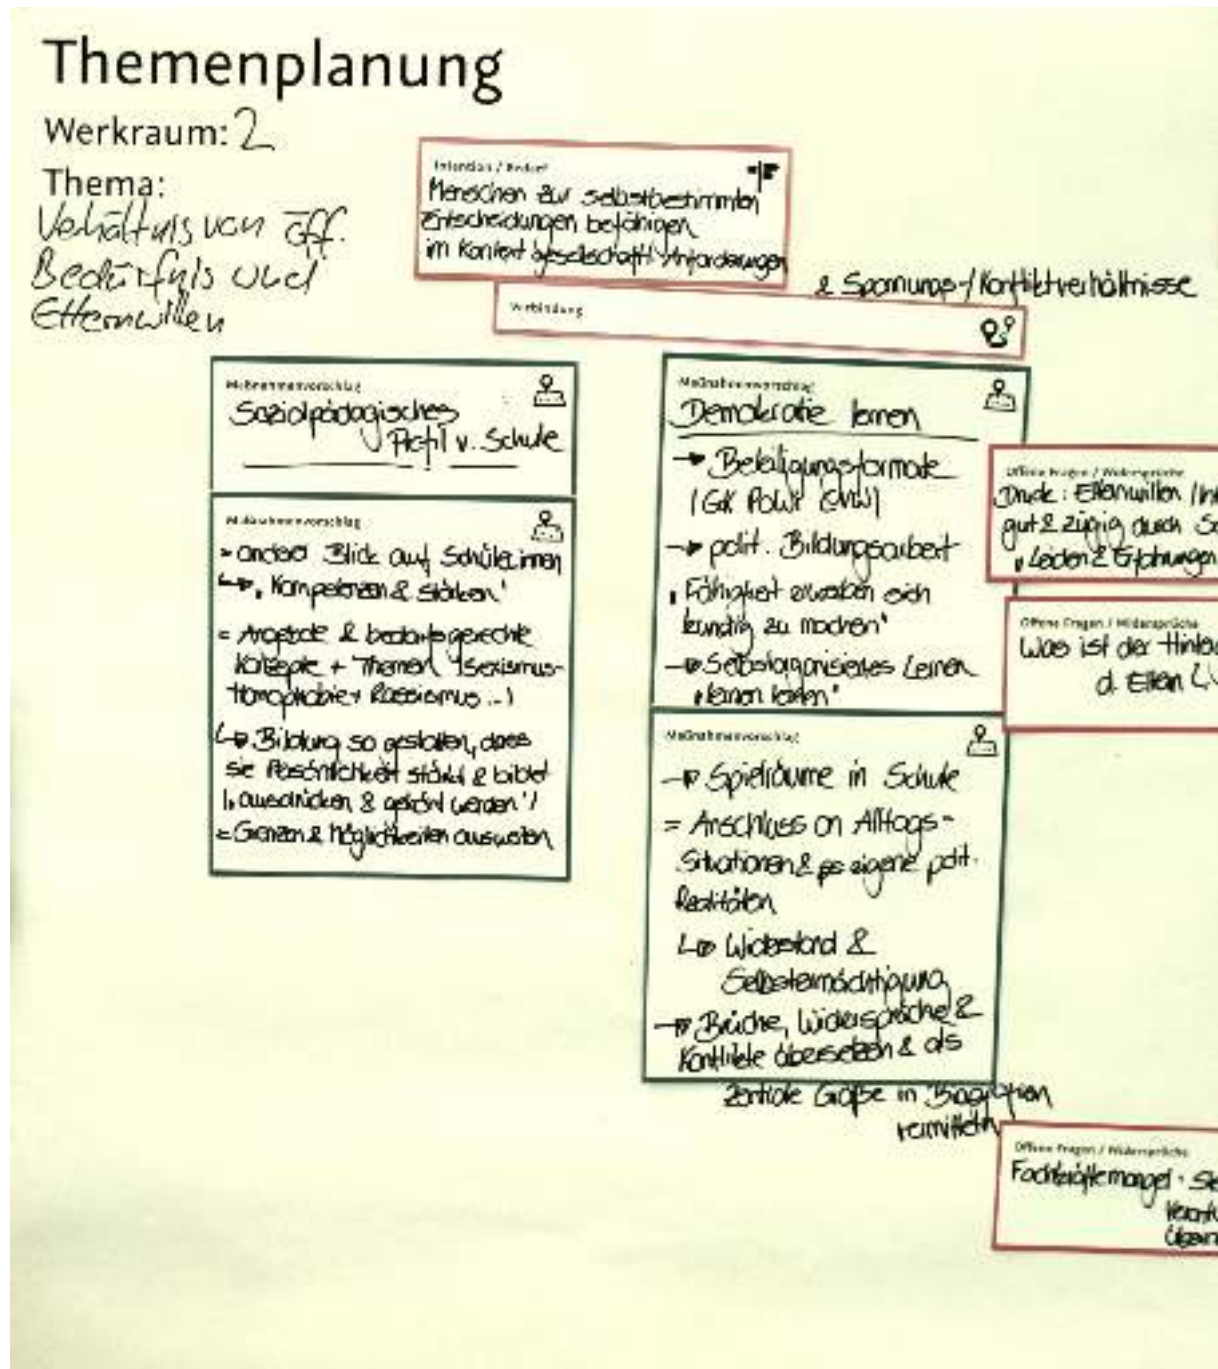 Themenplanung
Werkraum: 2
Thema:
Verhältnis von öff.
Bedürfnis und
Elternwillen
Intention / Bedarf
Menschen zur selbstbestimmten
Entscheidungen befähigen
im Kontext gesellschaftl. Anforderungen
& Spannungs-/Konfliktverhältnisse
Verbindung
Maßnahmenvorschlag
Sozialpädagogisches
Profil v. Schule
Maßnahmenvorschlag
= anderer Blick auf Schüler:innen
↳ "Kompetenzen & stärken"
= Angebote & bedarfsgerechte
Konzepte + Themen (Sexismus-
Homophobie + Rassismus ...)
↳ Bildung so gestalten, dass
sie Persönlichkeit stärkt & bildet
("ausdrücken & gehört werden")
= Grenzen & Möglichkeiten ausweiten
Maßnahmenvorschlag
Demokratie lernen
→ Beteiligungsformate
(GdK PoWi
→ polit. Bildungsarbeit
"Fähigkeit erwerben sich
kundig zu machen"
→ Selbstorganisiertes Lernen
"lernen lernen"
Maßnahmenvorschlag
→ Spielräume in Schule
= Anschluss an Alltags-
Situationen & eigene polit.
Realitäten
↳ Widerstand &
Selbstermächtigung
→ Brüche, Widersprüche &
Konflikte übersetzen & als
zentrale Größe in Biografien
vermitteln
Offene Fragen / Widersprüche
Druck: Elternwillen
gut & zügig durch
"Leiden & Erfahrungen
Offene Fragen / Widersprüche
Was ist der
d. Eltern
Offene Fragen / Widersprüche
Fachkräftemangel